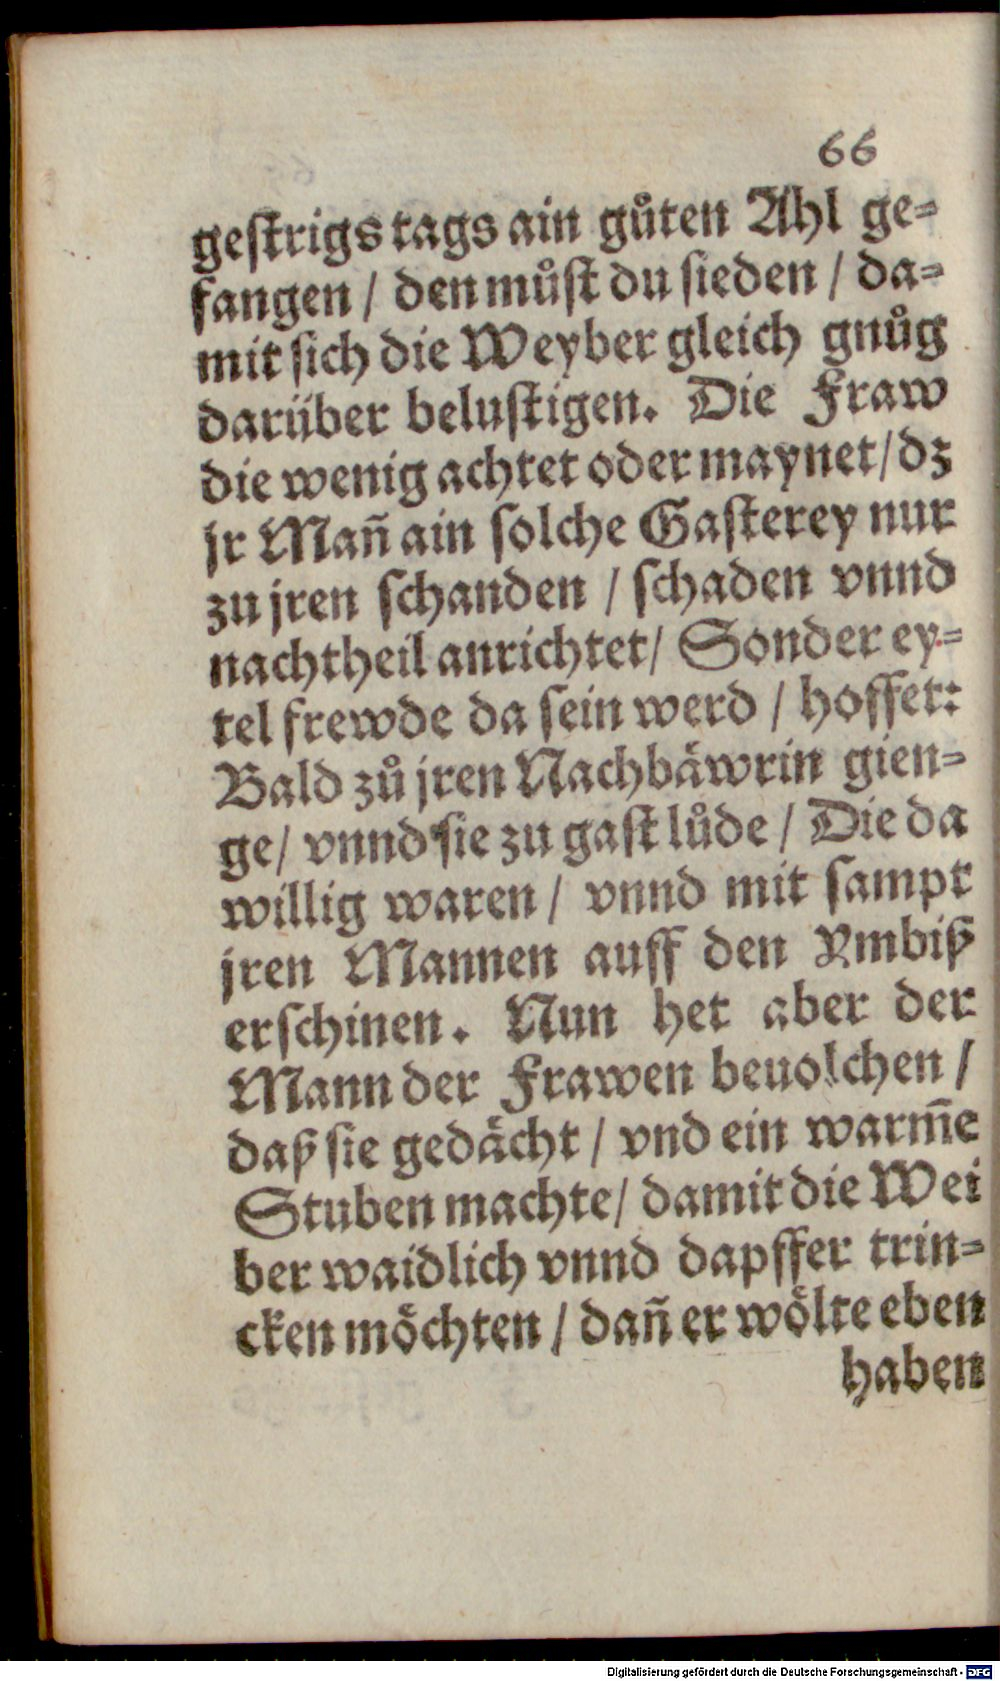 66
gestrigs tags ain gůten Ahl ge=
fangen / den můst du sieden / da=
mit sich die Weyber gleich gnůg
darüber belustigen. Die Fraw
die wenig achtet oder maynet / dz
jr Mañ ain solche Gasterey nur
zu jren schanden / schaden vnnd
nachtheil anrichtet / Sonder ey=
tel frewde da sein werd / hoffet:
Bald zů jren Nachbäwrin gien=
ge / vnnd sie zu gast lůde / Die da
willig waren / vnnd mit sampt
jren Mannen auff den Ymbiß
erschinen. Nun het aber der
Mann der Frawen beuolchen /
daß sie gedächt / vnd ein warm̃e
Stuben machte / damit die Wei
ber waidlich vnnd dapffer trin=
cken möchten / dañ er wölte eben
haben
Digitalisierung gefördert durch die Deutsche Forschungsgemeinschaft - DFG